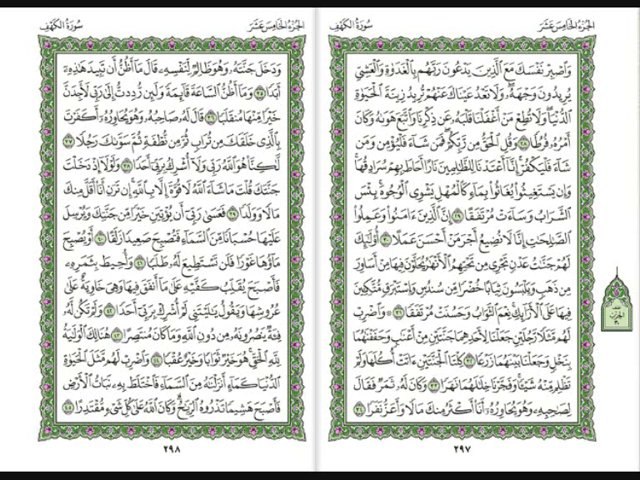 الجزء الخامس عشر
سورة الكهف
وَٱصْبِرْ نَفْسَكَ مَعَ ٱلَّذِينَ يَدْعُونَ رَبَّهُم بِٱلْغَدَوٰةِ وَٱلْعَشِيِّ
يُرِيدُونَ وَجْهَهُۥ وَلَا تَعْدُ عَيْنَاكَ عَنْهُمْ تُرِيدُ زِينَةَ ٱلْحَيَوٰةِ
ٱلدُّنْيَا وَلَا تُطِعْ مَنْ أَغْفَلْنَا قَلْبَهُۥ عَن ذِكْرِنَا وَٱتَّبَعَ هَوَىٰهُ وَكَانَ
أَمْرُهُۥ فُرُطًا ٢٨ وَقُلِ ٱلْحَقُّ مِن رَّبِّكُمْ فَمَن شَآءَ فَلْيُؤْمِن وَمَن
شَآءَ فَلْيَكْفُرْ إِنَّآ أَعْتَدْنَا لِلظَّـٰلِمِينَ نَارًا أَحَاطَ بِهِمْ سُرَادِقُهَا
وَإِن يَسْتَغِيثُوا۟ يُغَاثُوا۟ بِمَآءٍ كَٱلْمُهْلِ يَشْوِى ٱلْوُجُوهَ بِئْسَ
ٱلشَّرَابُ وَسَآءَتْ مُرْتَفَقًا ٢٩ إِنَّ ٱلَّذِينَ ءَامَنُوا۟ وَعَمِلُوا۟
ٱلصَّـٰلِحَـٰتِ إِنَّا لَا نُضِيعُ أَجْرَ مَنْ أَحْسَنَ عَمَلًا ٣٠ أُو۟لَـٰٓئِكَ
لَهُمْ جَنَّـٰتُ عَدْنٍ تَجْرِى مِن تَحْتِهِمُ ٱلْأَنْهَـٰرُ يُحَلَّوْنَ فِيهَا مِنْ أَسَاوِرَ
مِن ذَهَبٍ وَيَلْبَسُونَ ثِيَابًا خُضْرًا مِّن سُندُسٍ وَإِسْتَبْرَقٍ مُّتَّكِـِٔينَ
فِيهَا عَلَى ٱلْأَرَآئِكِ نِعْمَ ٱلثَّوَابُ وَحَسُنَتْ مُرْتَفَقًا ٣١ وَٱضْرِبْ
لَهُم مَّثَلًا رَّجُلَيْنِ جَعَلْنَا لِأَحَدِهِمَا جَنَّتَيْنِ مِنْ أَعْنَـٰبٍ وَحَفَفْنَـٰهُمَا
بِنَخْلٍ وَجَعَلْنَا بَيْنَهُمَا زَرْعًا ٣٢ كِلْتَا ٱلْجَنَّتَيْنِ ءَاتَتْ أُكُلَهَا وَلَمْ
تَظْلِم مِّنْهُ شَيْـًٔا وَفَجَّرْنَا خِلَـٰلَهُمَا نَهَرًا ٣٣ وَكَانَ لَهُۥ ثَمَرٌ فَقَالَ
لِصَـٰحِبِهِۦ وَهُوَ يُحَاوِرُهُۥٓ أَنَا۠ أَكْثَرُ مِنكَ مَالًا وَأَعَزُّ نَفَرًا ٣٤
الحزب
٣٠
٢٩٧
الجزء الخامس عشر
سورة الكهف
وَدَخَلَ جَنَّتَهُۥ وَهُوَ ظَالِمٌ لِّنَفْسِهِۦ قَالَ مَآ أَظُنُّ أَن تَبِيدَ هَـٰذِهِۦٓ
أَبَدًا ٣٥ وَمَآ أَظُنُّ ٱلسَّاعَةَ قَآئِمَةً وَلَئِن رُّدِدتُّ إِلَىٰ رَبِّى لَأَجِدَنَّ
خَيْرًا مِّنْهَا مُنقَلَبًا ٣٦ قَالَ لَهُۥ صَاحِبُهُۥ وَهُوَ يُحَاوِرُهُۥٓ أَكَفَرْتَ
بِٱلَّذِى خَلَقَكَ مِن تُرَابٍ ثُمَّ مِن نُّطْفَةٍ ثُمَّ سَوَّىٰكَ رَجُلًا ٣٧
لَّـٰكِنَّا۠ هُوَ ٱللَّهُ رَبِّى وَلَآ أُشْرِكُ بِرَبِّىٓ أَحَدًا ٣٨ وَلَوْلَآ إِذْ دَخَلْتَ
جَنَّتَكَ قُلْتَ مَا شَآءَ ٱللَّهُ لَا قُوَّةَ إِلَّا بِٱللَّهِ إِن تَرَنِ أَنَا۠ أَقَلَّ مِنكَ
مَالًا وَوَلَدًا ٣٩ فَعَسَىٰ رَبِّىٓ أَن يُؤْتِيَنِ خَيْرًا مِّن جَنَّتِكَ وَيُرْسِلَ
عَلَيْهَا حُسْبَانًا مِّنَ ٱلسَّمَآءِ فَتُصْبِحَ صَعِيدًا زَلَقًا ٤٠ أَوْ يُصْبِحَ
مَآؤُهَا غَوْرًا فَلَن تَسْتَطِيعَ لَهُۥ طَلَبًا ٤١ وَأُحِيطَ بِثَمَرِهِۦ
فَأَصْبَحَ يُقَلِّبُ كَفَّيْهِ عَلَىٰ مَآ أَنفَقَ فِيهَا وَهِىَ خَاوِيَةٌ عَلَىٰ
عُرُوشِهَا وَيَقُولُ يَـٰلَيْتَنِى لَمْ أُشْرِكْ بِرَبِّىٓ أَحَدًا ٤٢ وَلَمْ تَكُن لَّهُۥ
فِئَةٌ يَنصُرُونَهُۥ مِن دُونِ ٱللَّهِ وَمَا كَانَ مُنتَصِرًا ٤٣ هُنَالِكَ ٱلْوَلَـٰيَةُ
لِلَّهِ ٱلْحَقِّ هُوَ خَيْرٌ ثَوَابًا وَخَيْرٌ عُقْبًا ٤٤ وَٱضْرِبْ لَهُم مَّثَلَ ٱلْحَيَوٰةِ
ٱلدُّنْيَا كَمَآءٍ أَنزَلْنَـٰهُ مِنَ ٱلسَّمَآءِ فَٱخْتَلَطَ بِهِۦ نَبَاتُ ٱلْأَرْضِ
فَأَصْبَحَ هَشِيمًا تَذْرُوهُ ٱلرِّيَـٰحُ وَكَانَ ٱللَّهُ عَلَىٰ كُلِّ شَىْءٍ مُّقْتَدِرًا ٤٥
٢٩٨